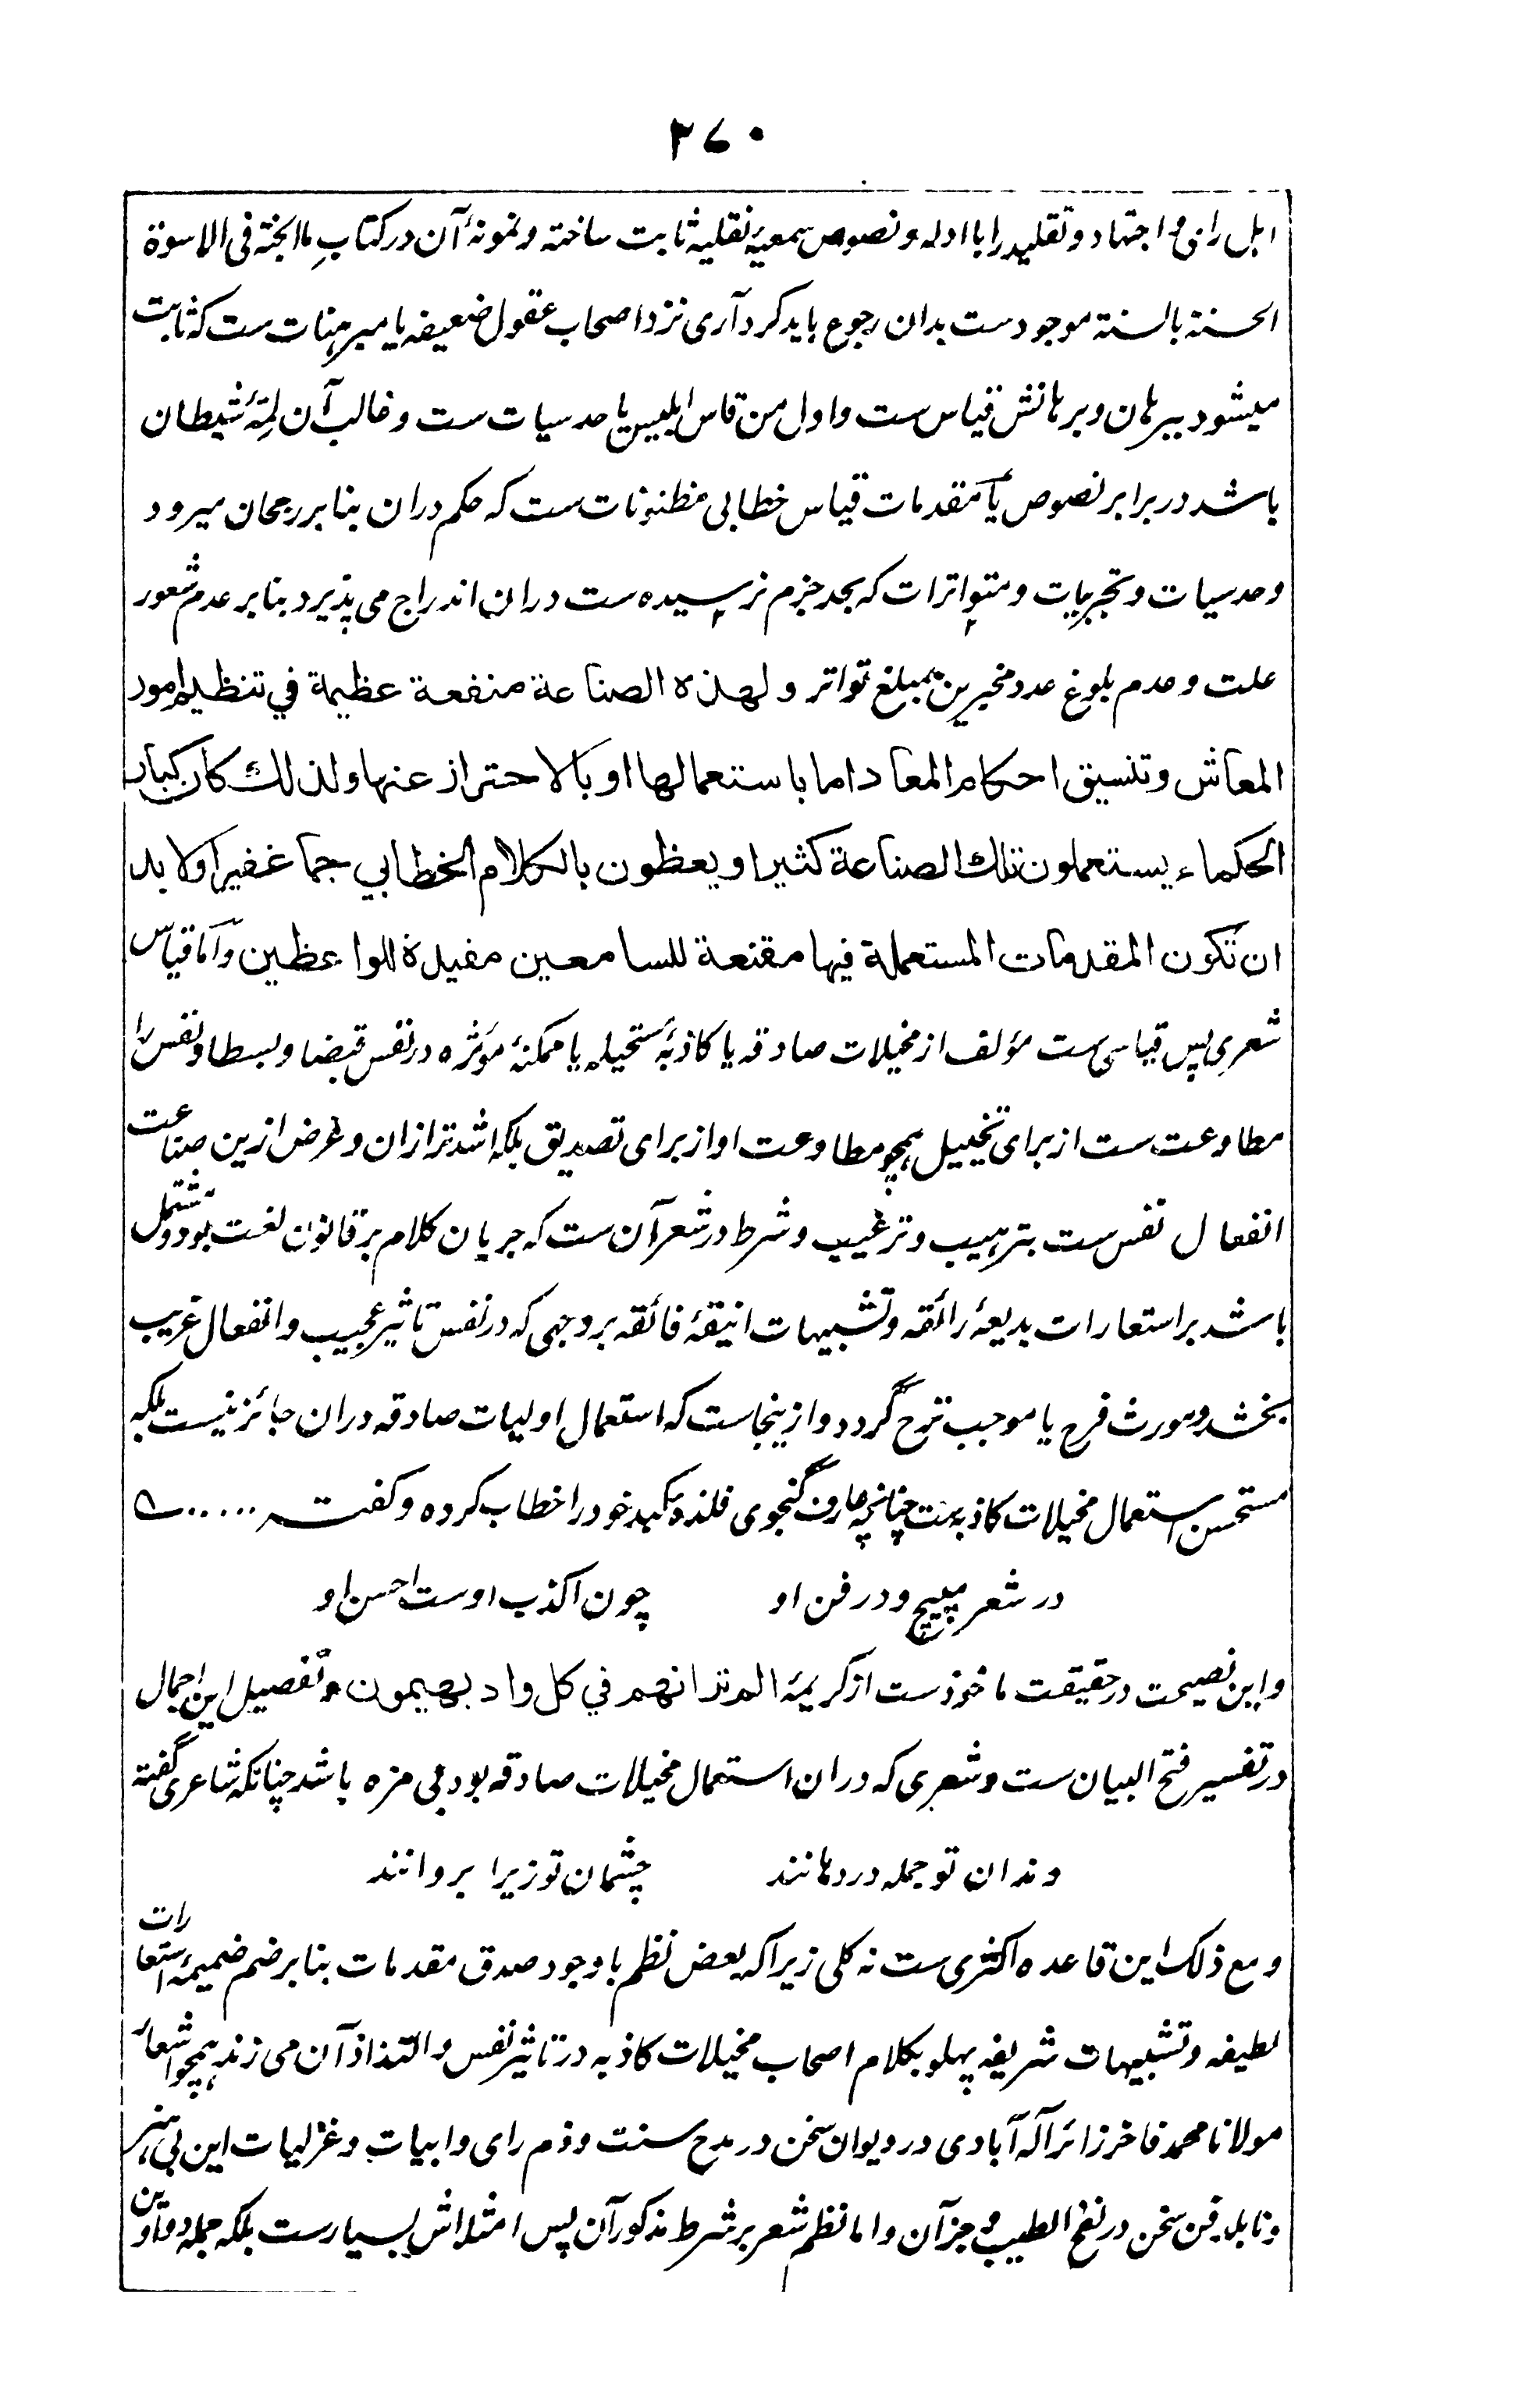 ۲۷۰
اہل رای و اجتہاد و تقلید را با ادلہ و نصوص سمعیۂ نقلیہ ثابت ساختہ و نمونۂ آن در کتابِ ما الجنۃ فی الاسوۃ
الحسنۃ بالسنۃ موجودست بدان رجوع باید کرد آری نزد اصحاب عقول ضعیفہ یا مبرہنات ست کہ ثابت
میشود ببرہان و برہانش قیاس ست و اول من قاس ابلیس یا حدسیات ست و غالب آن لمۂ شیطان
باشد در برابر نصوص یا مقدمات قیاس خطابی مظنونات ست کہ حکم دران بنا بر رجحان میرود
و حدسیات و تجربیات و متواترات کہ بحد جزم نرسیدہ ست دران اندراج می پذیرد بنا بر عدم شعور
علت و عدم بلوغ عدد مخبرین بمبلغ تواتر ولهذه الصناعة منفعة عظيمة في تنظيم امور
المعاش وتنسيق احكام المعاد اما باستعمالها او بالاحتراز عنها ولذلك كان كبار
الحكماء يستعملون تلك الصناعة كثيرا ويعظون بالكلام الخطابي جما غفيرا ولا بد
ان تكون المقدمات المستعملة فيها مقنعة للسامعين مفيدة للواعظين و اما قیاس
شعری پس قیاسی ست مؤلف از مخیلات صادقہ یا کاذبۂ مستحیلہ یا ممکنۂ مؤثرہ در نفس قبضا و بسطا و نفس را
مطاوعت ست از برای تخییل ہمچو مطاوعت او از برای تصدیق بلکہ اشد تر ازان و غرض ازین صناعت
انفعال نفس ست بترہیب و ترغیب و شرط در شعر آن ست کہ جریان کلام بر قانون لغت بود و مشتمل
باشد بر استعارات بدیعۂ رائقہ و تشبیہات انیقۂ فائقہ بر وجہی کہ در نفس تاثیر عجیب و انفعال غریب
بخشد و مورث فرح یا موجب ترح گردد و ازینجاست کہ استعمال اولیات صادقہ دران جائز نیست بلکہ
مستحسن استعمال مخیلات کاذبہ ست چنانچہ عارف گنجوی فلذۂ کبد خود را خطاب کردہ و گفتہ ......
در شعر مپیچ و در فن او چون اکذب اوست احسن او
و این نصیحت در حقیقت ماخوذست از کریمۂ الم تر انهم في كل واد يهيمون و تفصیل این اجمال
در تفسیر فتح البیان ست و شعری کہ دران استعمال مخیلات صادقہ بود بی مزہ باشد چنانکہ شاعری گفتہ
دندان تو جملہ در دہانند چشمان تو زیر ابروانند
و مع ذلک این قاعدہ اکثری ست نہ کلی زیرا کہ بعض نظم با وجود صدق مقدمات بنا بر ضم ضمیمۂ استعارات
لطیفہ و تشبیہات شریفہ پہلو بکلام اصحاب مخیلات کاذبہ در تاثیر نفس و التذاذ آن می زند ہمچو اشعار
مولانا محمد فاخر زائر آلہ آبادی در دیوان سخن در مدح سنت و ذم رای و ابیات و غزلیات این بی ہنر
و نابلد فن سخن در نفح الطیب و جز آن و اما نظم شعر بر شرط مذکور آن پس امثلہ اش بسیارست بلکہ جملہ دواوین